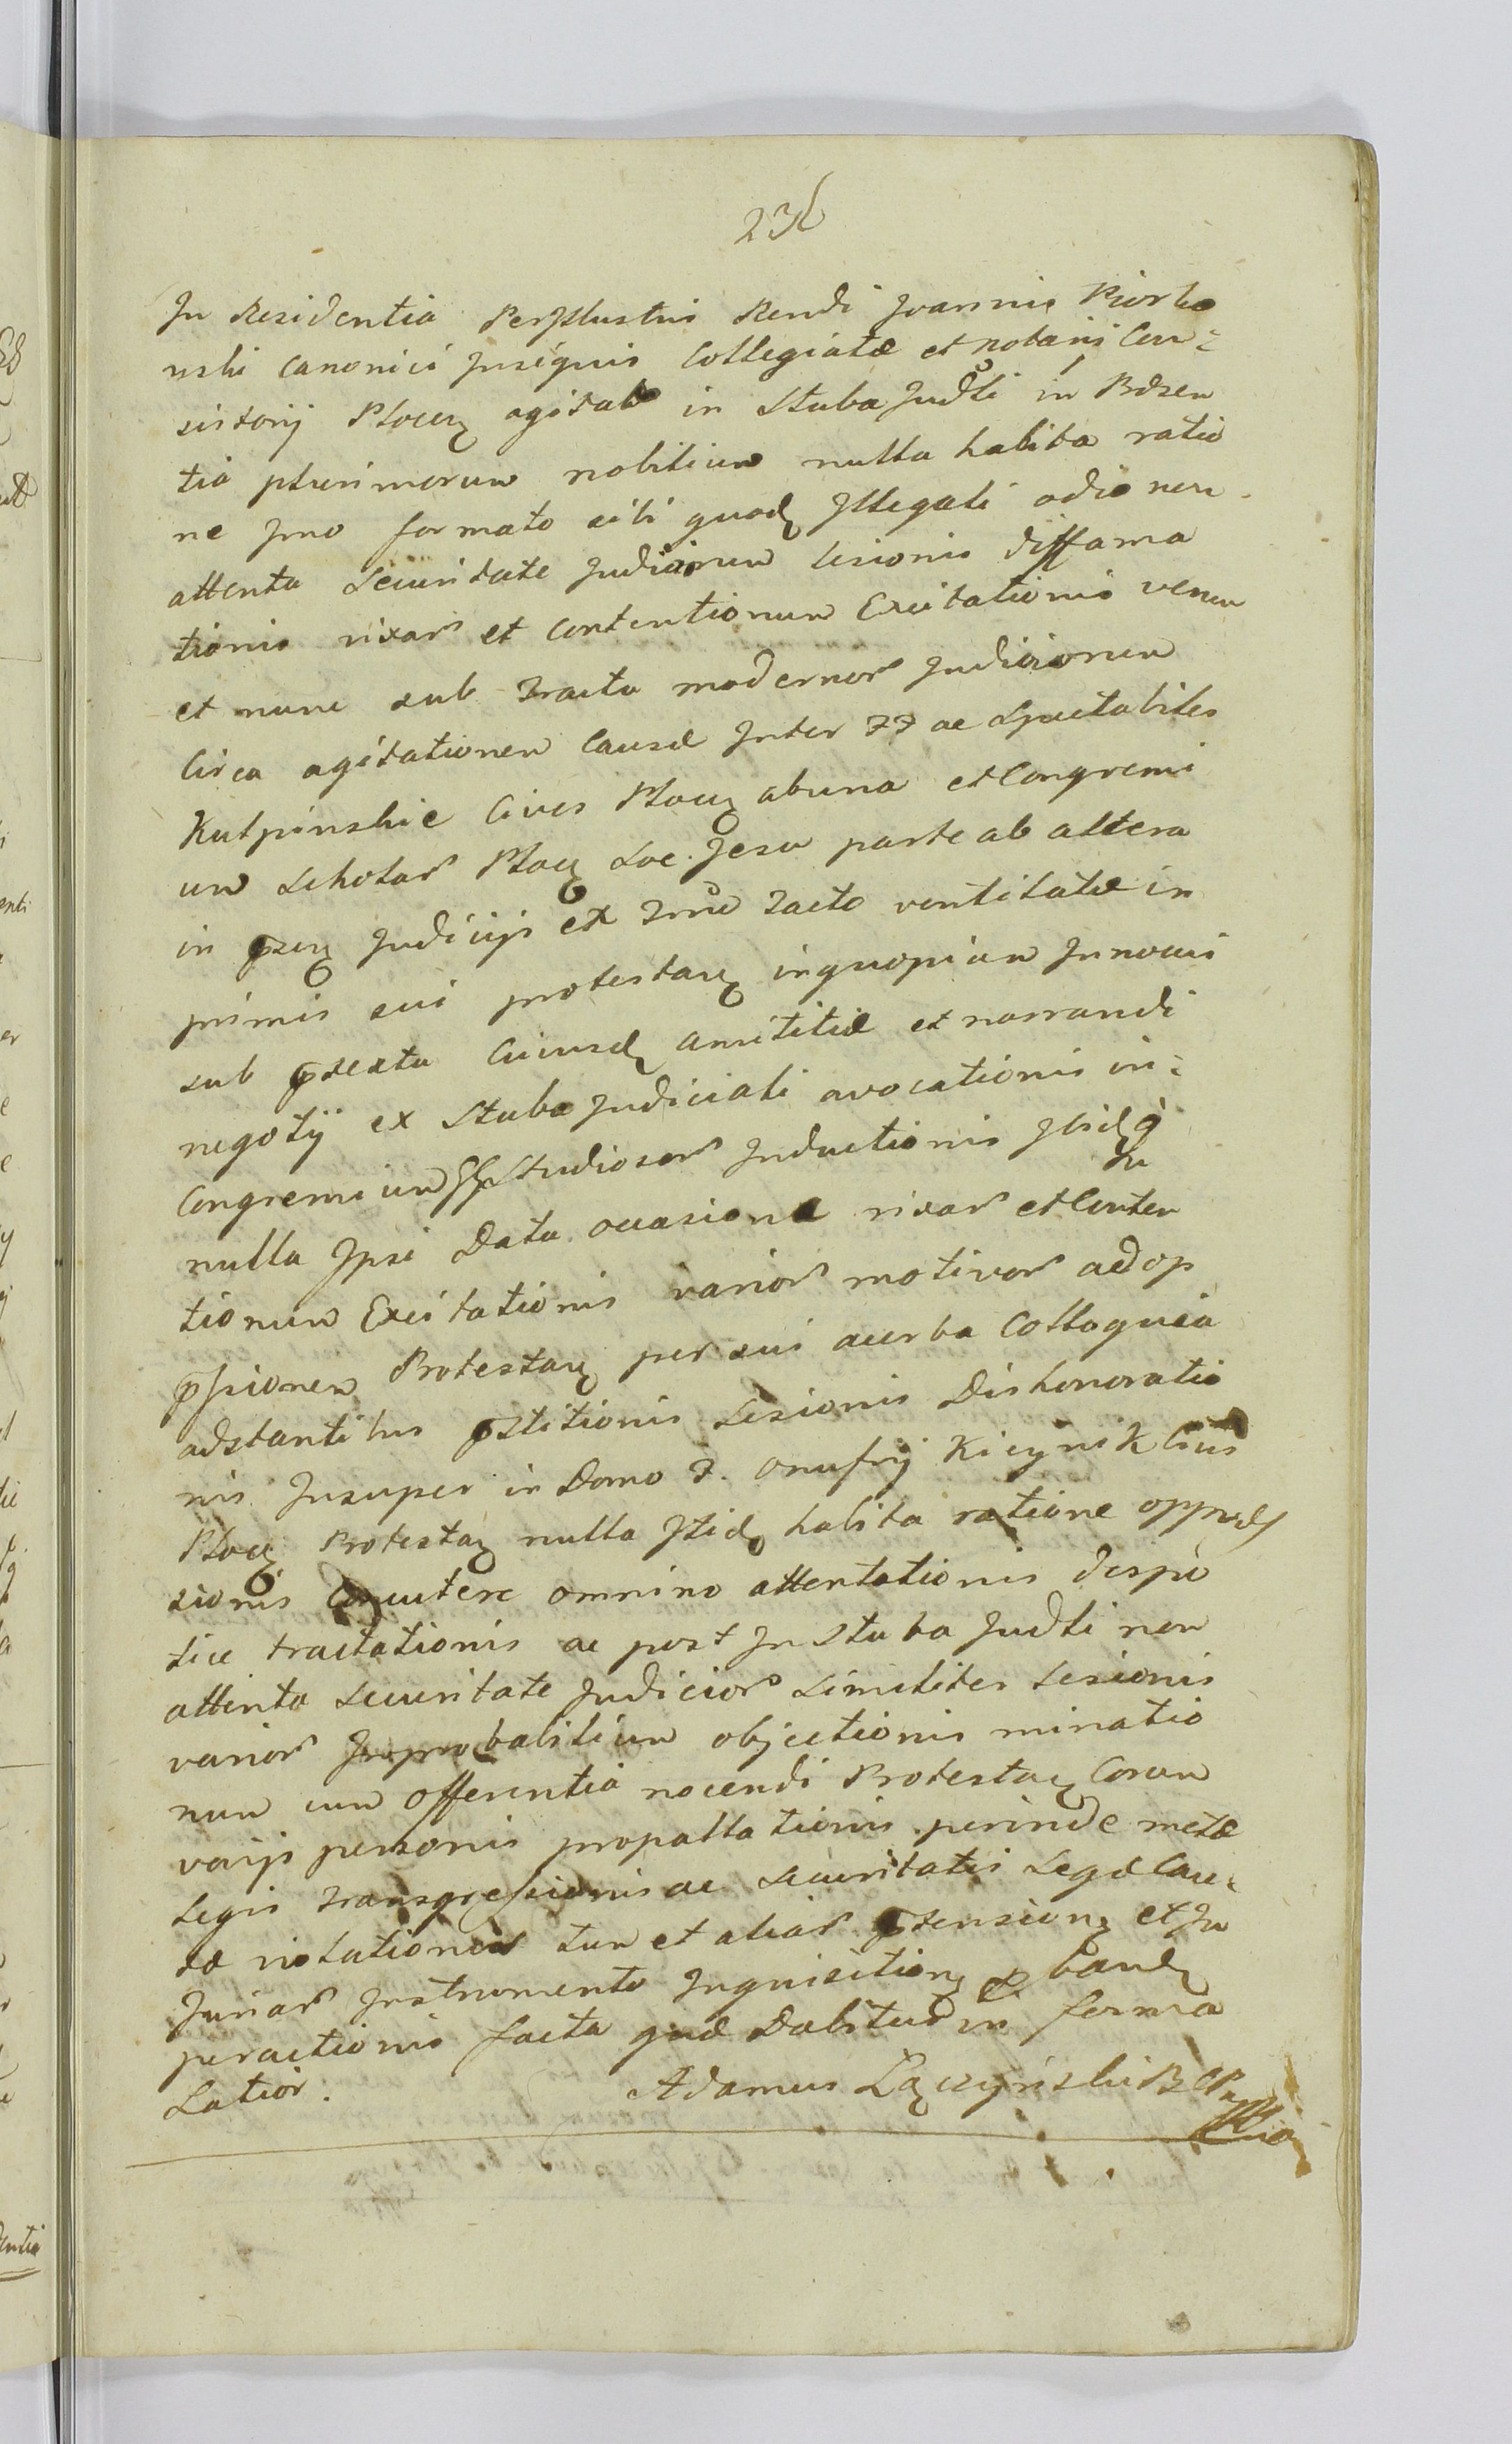 236
In Residentia Perjllustris Rendi Joannis Piorko
wski Canonici Insignis Collegiatæ et notarij Con=
sistorij Plocen agitat in Stuba Judli in Pdsen
tia plurimorum nobilium nulla habita ratio
ne Imo formato sibi quod Illegali odio non
attenta securitate Judiciorum lesionis diffama
tionis rixar et Contentionum Excitationis verum
et nunc sub Tractu modernor Judiciorum
Circa agitationem Causæ Inter FF ac Spectabiles
Kulpinskie Cives Plocen ab una et Congremi
um Scholar Plocen Soc. Jesu parte ab altera
in Judicijs ex ventilatæ in
primis sui protestan inquopiam Innocui
sub ptextu Cujusd amititiæ et narrandi
negotij ex Stuba Judiciali avocationis in=
Congremium Studiosor Inductionis Ibid
nulla Ipsi Data occasione rixar et Conten
tionum Excitationis varior motivor adop
psionem Protestan per sui acerba Colloquia
adstantibus pstitionis Lesionis Dishonoratio
nis Insuper in Domo F. Onufrij Kicynik Civis
Plocen Protestan nulla Itid habita ratione oppres
sionis Concutere omnino attentationis despo
tice tractationis ac post In Stuba Judli non
attenta securitate Judicior similiter lesionis
varior Improbabilium objectionis minatio
num cum Offerentia nocendi Protestan Coram
varijs personis propallationis perinde metæ
Legis Transgressionis ac securitatis Lege Cau=
tæ violationis tum et aliar ptension et In
Juriar Instrumento Inquisition band
peractionis facta quæ Dabitur in forma
Latiori. Adamus Łączyński B C P